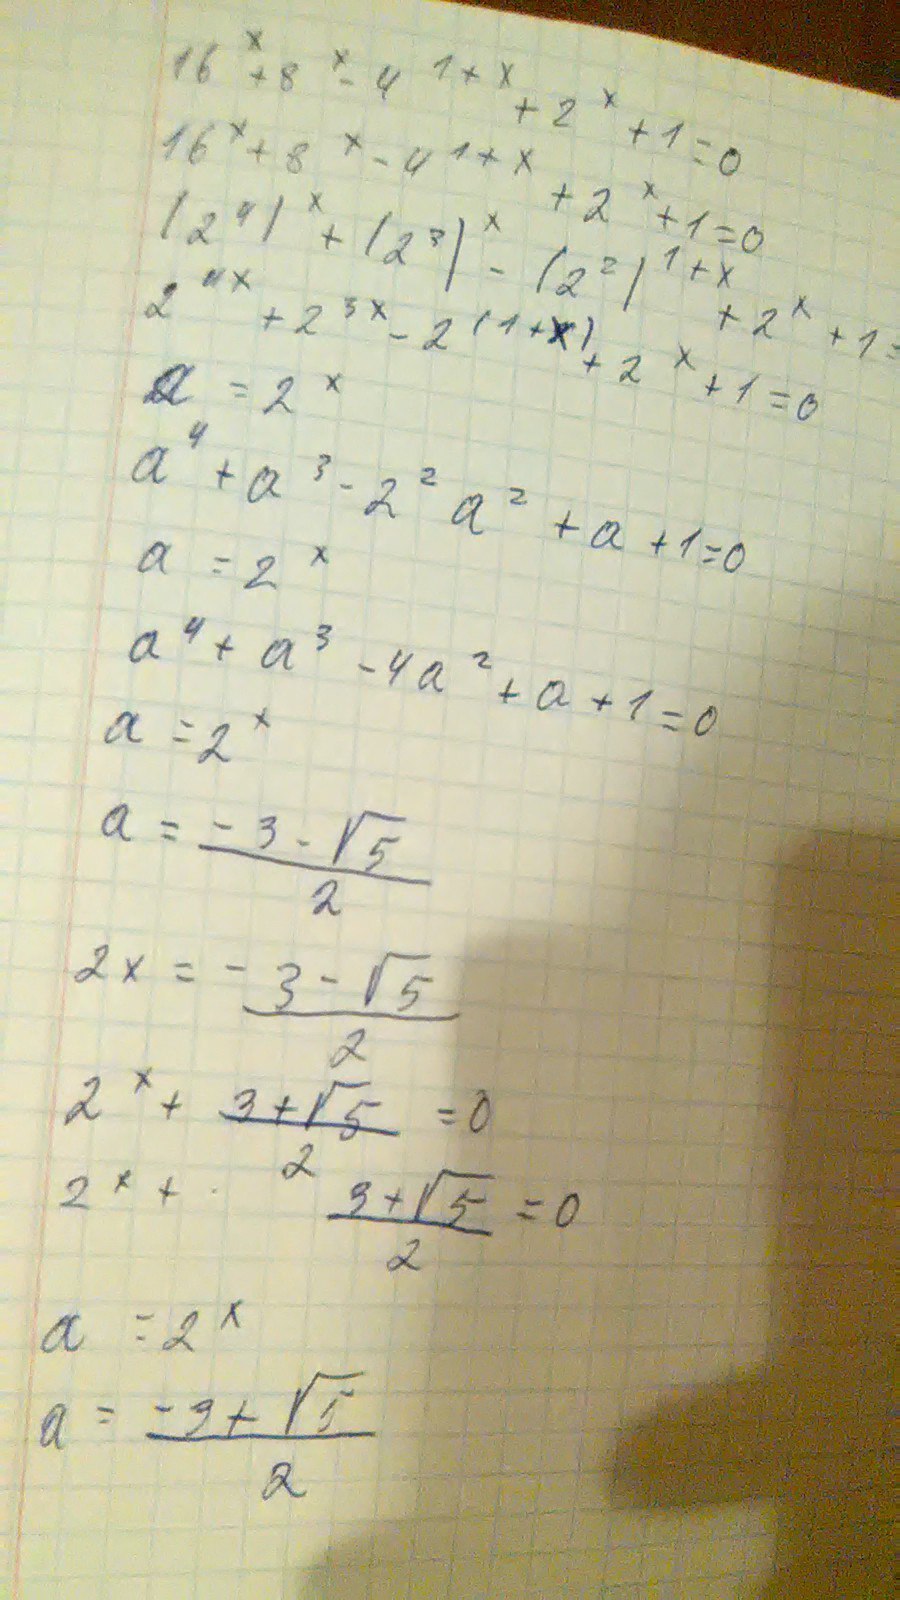 16^x + 8^x - 4^{1+x} + 2^x + 1 = 0
16^x + 8^x - 4^{1+x} + 2^x + 1 = 0
(2^4)^x + (2^3)^x - (2^2)^{1+x} + 2^x + 1 =
2^{4x} + 2^{3x} - 2^{(1+x)} + 2^x + 1 = 0
a = 2^x
a^4 + a^3 - 2^2 a^2 + a + 1 = 0
a = 2^x
a^4 + a^3 - 4a^2 + a + 1 = 0
a = 2^x
a = \frac{-3 - \sqrt{5}}{2}
2x = -\frac{3 - \sqrt{5}}{2}
2^x + \frac{3 + \sqrt{5}}{2} = 0
2^x + \frac{3 + \sqrt{5}}{2} = 0
a = 2^x
a = \frac{-3 + \sqrt{5}}{2}